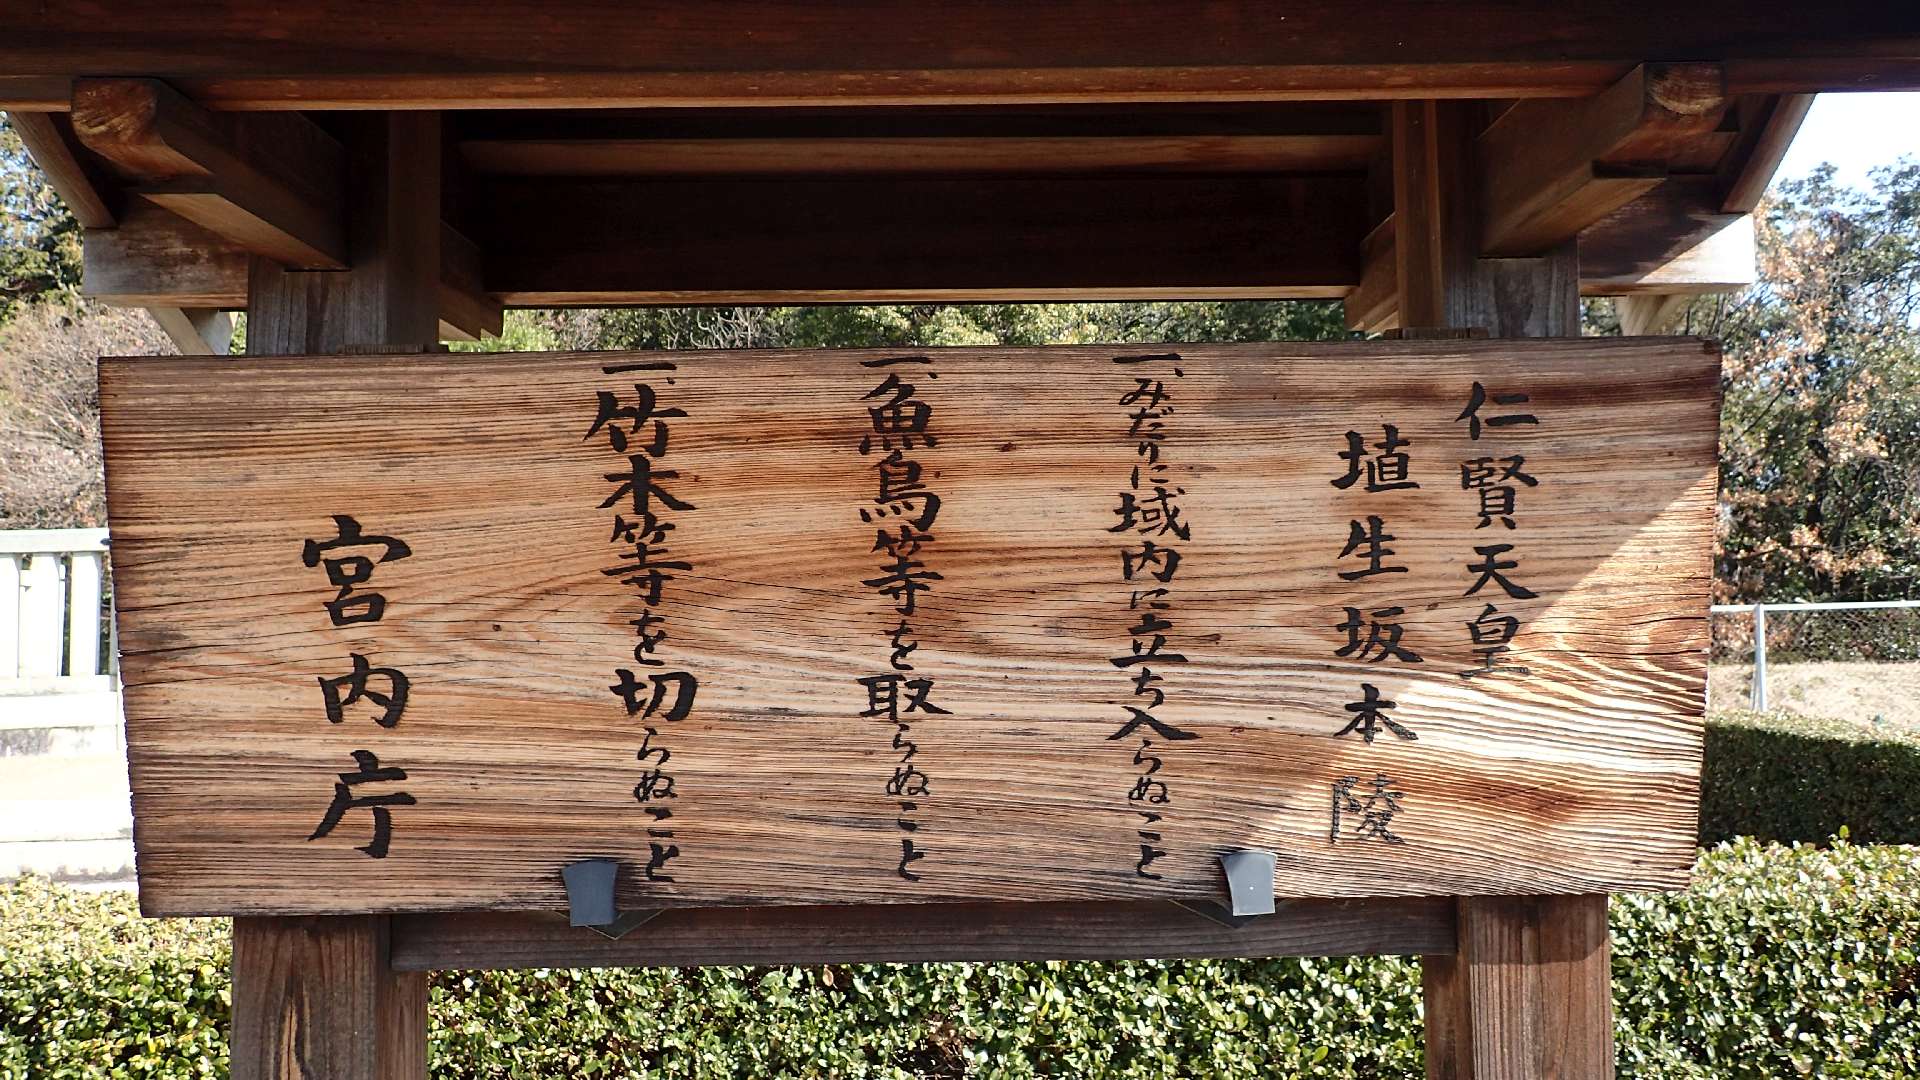 仁賢天皇
埴生坂本陵
一、みだりに域内に立ち入らぬこと
一、魚鳥等を取らぬこと
一、竹木等を切らぬこと
宮内庁